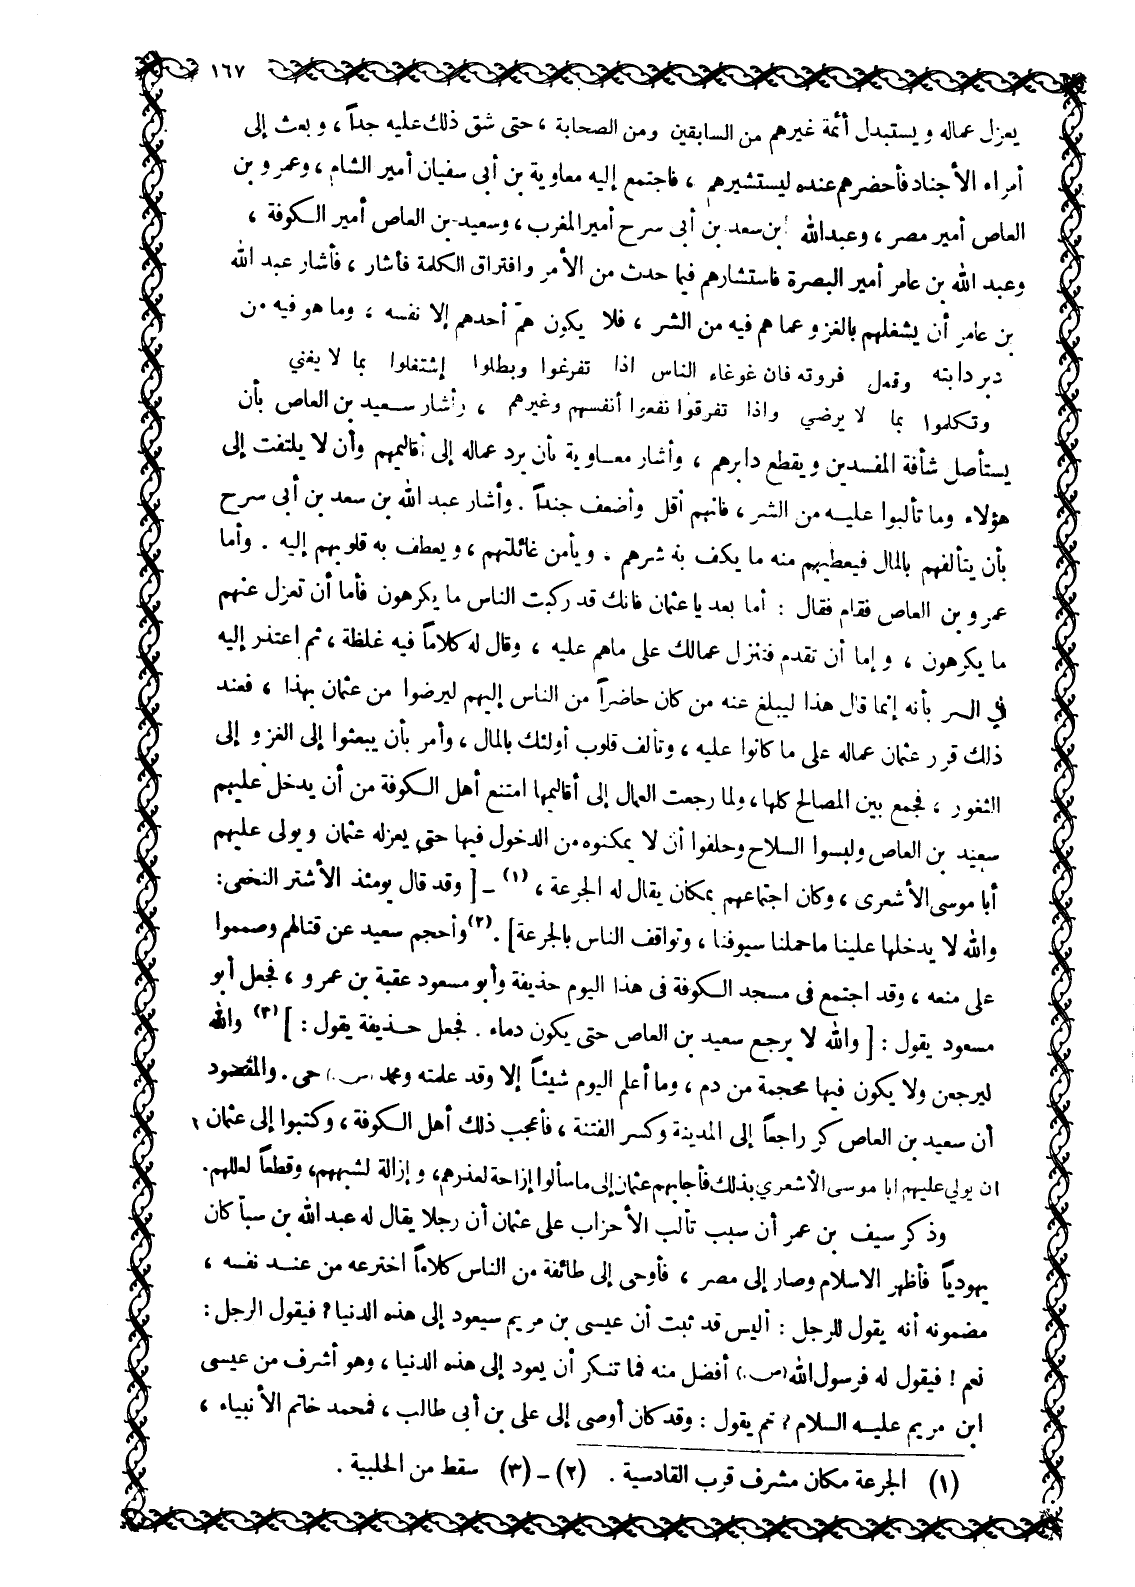 ١٦٧
يعزل عماله ويستبدل أئمة غيرهم من السابقين ومن الصحابة ، حتى شق ذلك عليه جداً ، وبعث إلى
أمراء الأجناد فأحضرهم عنده ليستشيرهم ، فاجتمع إليه معاوية بن أبى سفيان أمير الشام ، وعمرو بن
العاص أمير مصر ، وعبدالله ابن سعد بن أبى سرح أمير المغرب ، وسعيد بن العاص أمير الكوفة ،
وعبد الله بن عامر أمير البصرة فاستشارهم فيما حدث من الأمر وافتراق الكلمة فأشار ، فأشار عبد الله
بن عامر أن يشغلهم بالغزو عما هم فيه من الشر ، فلا يكون هم أحدهم إلا نفسه ، وما هو فيه من
دبر دابته وقمل فروته فان غوغاء الناس اذا تفرغوا وبطلوا إشتغلوا بما لا يغني
وتكلموا بما لا يرضي واذا تفرقوا نفعوا أنفسهم وغيرهم ، وأشار سعيد بن العاص بأن
يستأصل شأفة المفسدين ويقطع دابرهم ، وأشار معاوية بأن يرد عماله إلى أقاليمهم وأن لا يلتفت إلى
هؤلاء وما تألبوا عليه من الشر ، فانهم أقل وأضعف جنداً . وأشار عبد الله بن سعد بن أبى سرح
بأن يتألفهم بالمال فيعطيهم منه ما يكف به شرهم . ويأمن غائلتهم ، ويعطف به قلوبهم إليه . وأما
عمرو بن العاص فقام فقال : أما بعد يا عثمان فانك قد ركبت الناس ما يكرهون فأما أن تعزل عنهم
ما يكرهون ، وإما أن تقدم فتنزل عمالك على ماهم عليه ، وقال له كلاماً فيه غلظة ، ثم اعتذر إليه
في السر بأنه إنما قال هذا ليبلغ عنه من كان حاضراً من الناس إليهم ليرضوا من عثمان بهذا ، فعند
ذلك قرر عثمان عماله على ما كانوا عليه ، وتألف قلوب أولئك بالمال ، وأمر بأن يبعثوا إلى الغزو إلى
الثغور ، فجمع بين المصالح كلها ، ولما رجعت العمال إلى أقاليمها امتنع أهل الكوفة من أن يدخل عليهم
سعيد بن العاص ولبسوا السلاح وحلفوا أن لا يمكنوه من الدخول فيها حتى يعزله عثمان ويولى عليهم
أبا موسى الأشعرى ، وكان اجتماعهم بمكان يقال له الجرعة ، (١) ـ [ وقد قال يومئذ الأشتر النخعى :
والله لا يدخلها علينا ما حملنا سيوفنا ، وتواقف الناس بالجرعة ] . (٢) وأحجم سعيد عن قتالهم وصمموا
على منعه ، وقد اجتمع فى مسجد الكوفة فى هذا اليوم حذيفة وأبو مسعود عقبة بن عمرو ، فجعل أبو
مسعود يقول : [ والله لا يرجع سعيد بن العاص حتى يكون دماء . فجعل حذيفة يقول : ] (٣) والله
ليرجعن ولا يكون فيها محجمة من دم ، وما أعلم اليوم شيئاً إلا وقد علمته ومحمد (ص.) حى . والمقصود
أن سعيد بن العاص كر راجعاً إلى المدينة وكسر الفتنة ، فأعجب ذلك أهل الكوفة ، وكتبوا إلى عثمان
ان يولي عليهم ابا موسى الأشعري بذلك فأجابهم عثمان إلى ما سألوا إزاحة لعذرهم ، وإزالة لشبههم ، وقطعاً لعللهم .
وذكر سيف بن عمر أن سبب تألب الأحزاب على عثمان أن رجلا يقال له عبد الله بن سبأ كان
يهودياً فأظهر الاسلام وصار إلى مصر ، فأوحى إلى طائفة من الناس كلاماً اخترعه من عند نفسه ،
مضمونه أنه يقول للرجل : أليس قد ثبت أن عيسى بن مريم سيعود إلى هذه الدنيا ؟ فيقول الرجل :
نعم ! فيقول له فرسول الله (ص.) أفضل منه فما تنكر أن يعود إلى هذه الدنيا ، وهو أشرف من عيسى
ابن مريم عليه السلام ؟ ثم يقول : وقد كان أوصى إلى على بن أبى طالب ، فمحمد خاتم الأنبياء ،
(١) الجرعة مكان مشرف قرب القادسية . (٢) ـ (٣) سقط من الحلبية .